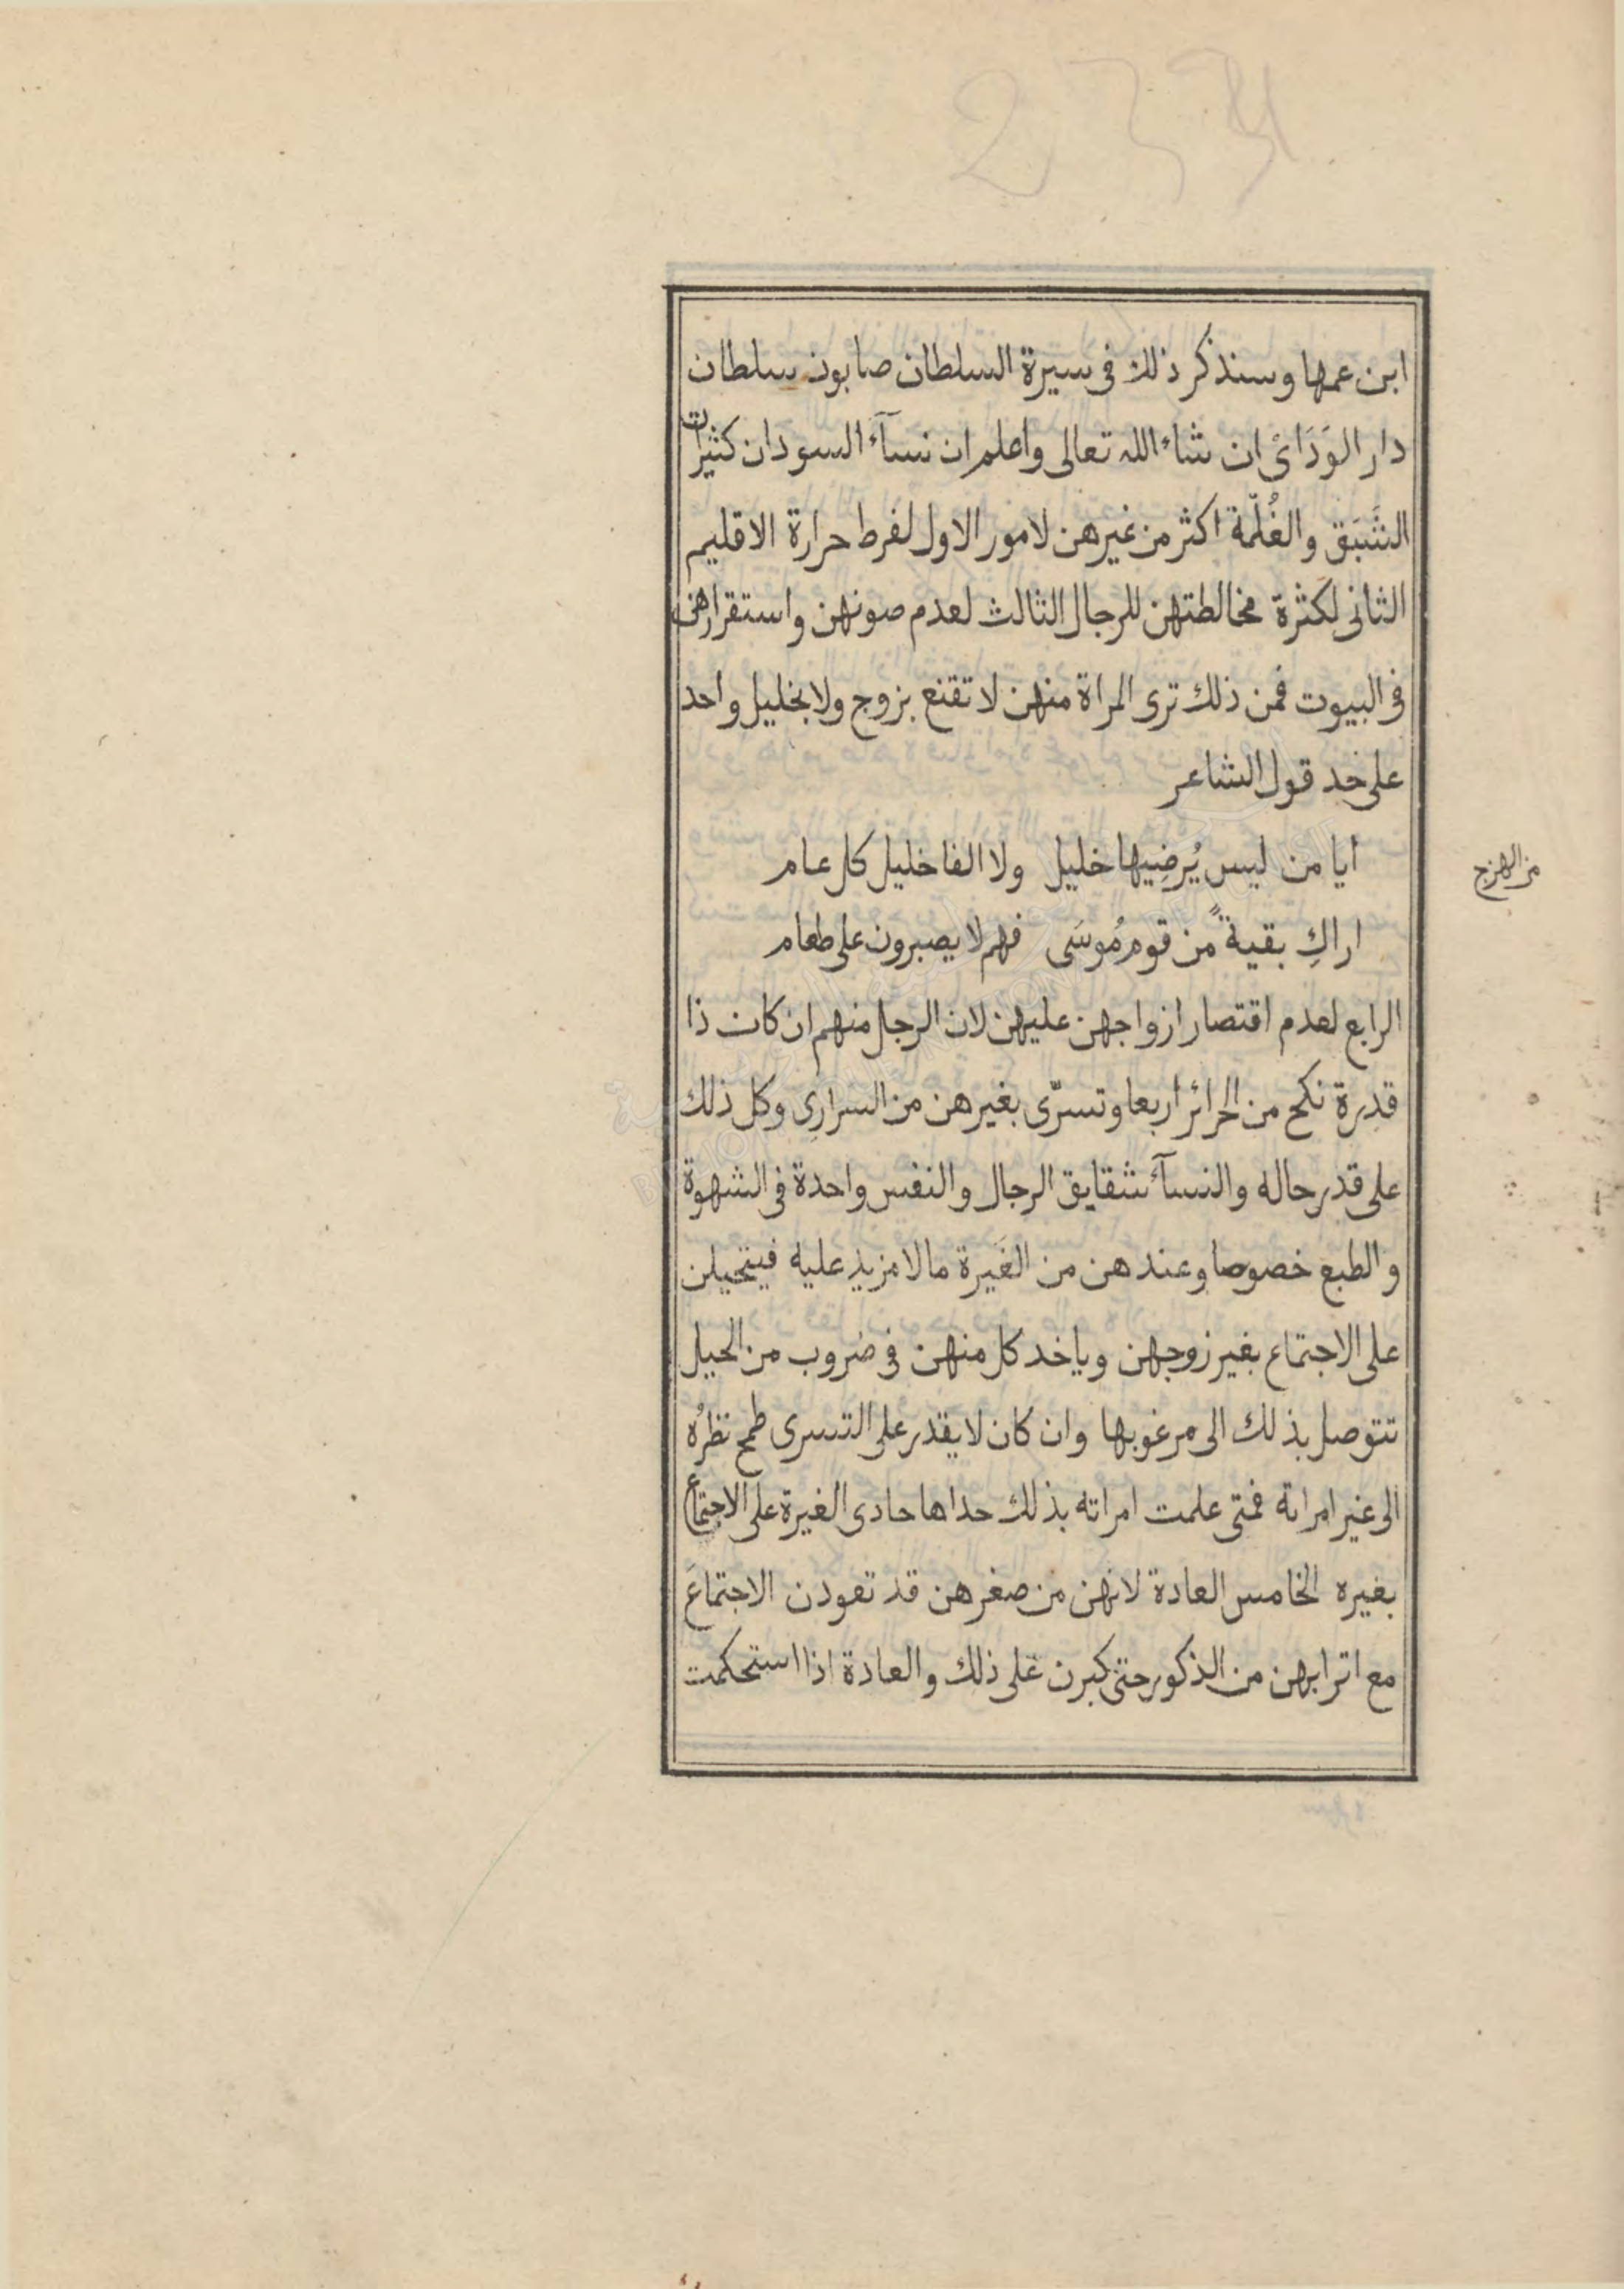 ابن عمها وسنذكر ذلك فى سيرة السلطان صابون سلطان
دار الوَدَائ ان شاء الله تعالى واعلم ان نسآء السودان كثيرات
الشَبَق والغُلّمة اكثر من غيرهن لامور الاول لفرط حرارة الاقليم
الثانى لكثرة مخالطتهن للرجال الثالث لعدم صونهن واستقرارهن
فى البيوت فمن ذلك ترى المراة منهن لا تقنع بزوج ولا بخليل واحد
على حد قول الشاعر
ايا من ليس يُرضِيها خليل ولا الفا خليل كل عام
من الهزج
اراكِ بقيةً من قوم مُوسَى فهم لا يصبرون على طعام
الرابع لعدم اقتصار ازواجهن عليهن لان الرجل منهم ان كان ذا
قدرة نكح من الحرائر اربعا وتسرّى بغيرهن من السرارى وكل ذلك
على قدر حاله والنسآء شقايق الرجال والنفس واحدة فى الشهوة
والطبع خصوصا وعندهن من الغَيرة مالا مزيد عليه فيتحيلن
على الاجتماع بغير زوجهن وياخد كل منهن فى ضروب من الحيل
تتوصل بذلك الى مرغوبها وان كان لا يقدر على التسرى طمح نظرُه
الى غير امراته فمتى علمت امراته بذلك حداها حادى الغيرة على الاجتماع
بغيره الخامس العادة لانهن من صغرهن قد تعودن الاجتماعَ
مع اترابهن من الذكور حتى كبرن على ذلك والعادة اذا استحكمت